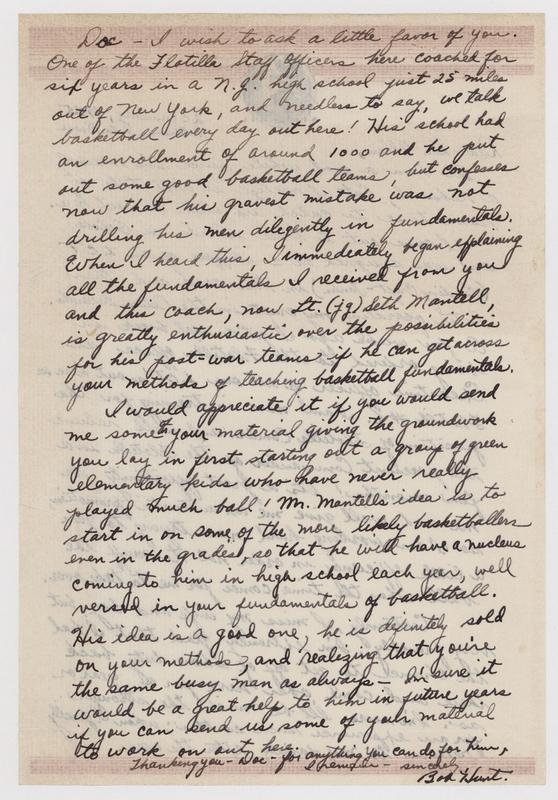 Doc - I wish to ask a little favor of you.
One of the Flotilla Staff Officers here coached for
six years in a N.J. high school just 25 miles
out of New York, and needless to say, we talk
basketball every day out here! His school had
an enrollment of around 1000 and he put
out some good basketball teams, but confesses
now that his gravest mistake was not
drilling his men diligently in fundamentals.
When I heard this, I immediately began explaining
all the fundamentals I received from you
and this coach, now Lt. (jg) Seth Mantell,
is greatly enthusiastic over the possibilities
for his post-war teams if he can get across
your methods of teaching basketball fundamentals.
I would appreciate it if you would send
me some of your material giving the groundwork
you lay in first starting out a group of green
elementary kids who have never really
played much ball! Mr. Mantell's idea is to
start in on some of the more likely basketballers
even in the grades, so that he will have a nucleus
coming to him in high school each year, well
versed in your fundamentals of basketball.
His idea is a good one, he is definitely sold
on your methods, and realizing that you're
the same busy man as always - I'm sure it
would be a great help to him in future years
if you can send us some of your material
to work on out here.
Thanking you - Doc - for anything you can do for him,
I remain - sincerely
Bob Hunt.